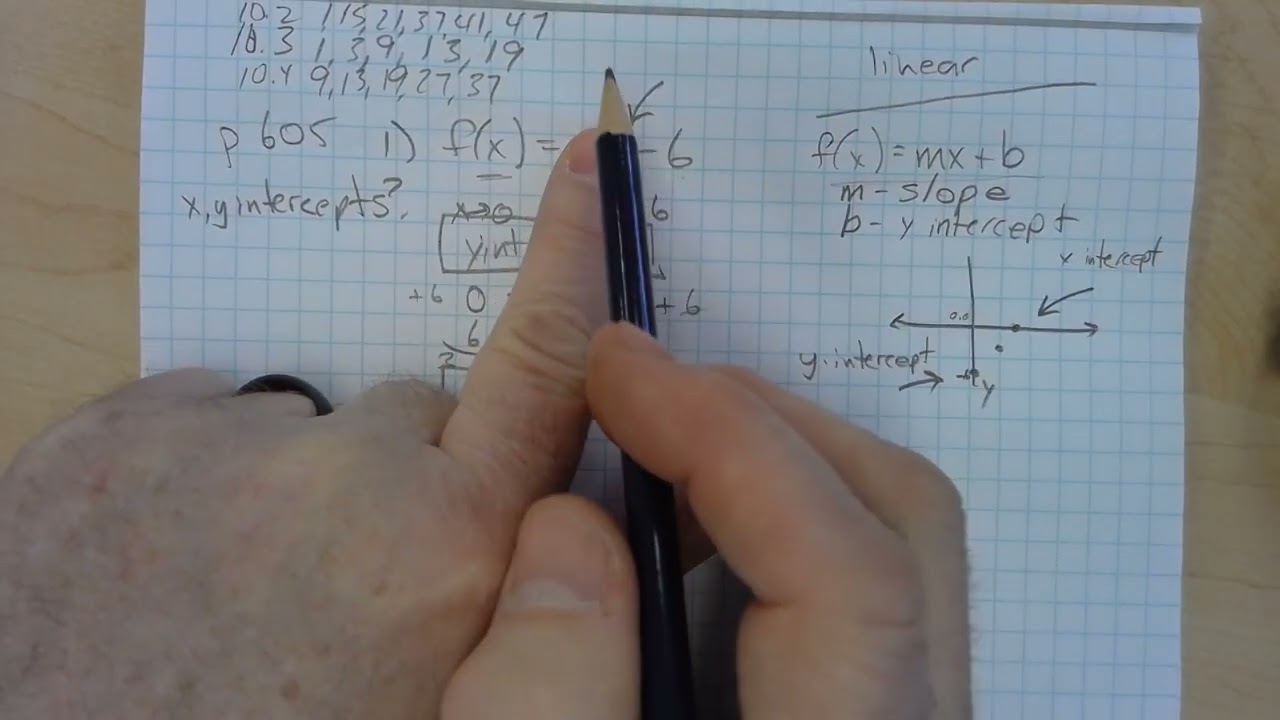 10.2 1,15,21,37,41,47
10.3 1,3,9,13,19
10.4 9,13,19,27,37
p 605 1) f(x) = - 6
x,y intercepts?
x→0 6
y int
+6 0 + 6
6
linear
f(x) = mx + b
m - slope
b - y intercept
x intercept
0.0
y.intercept
y